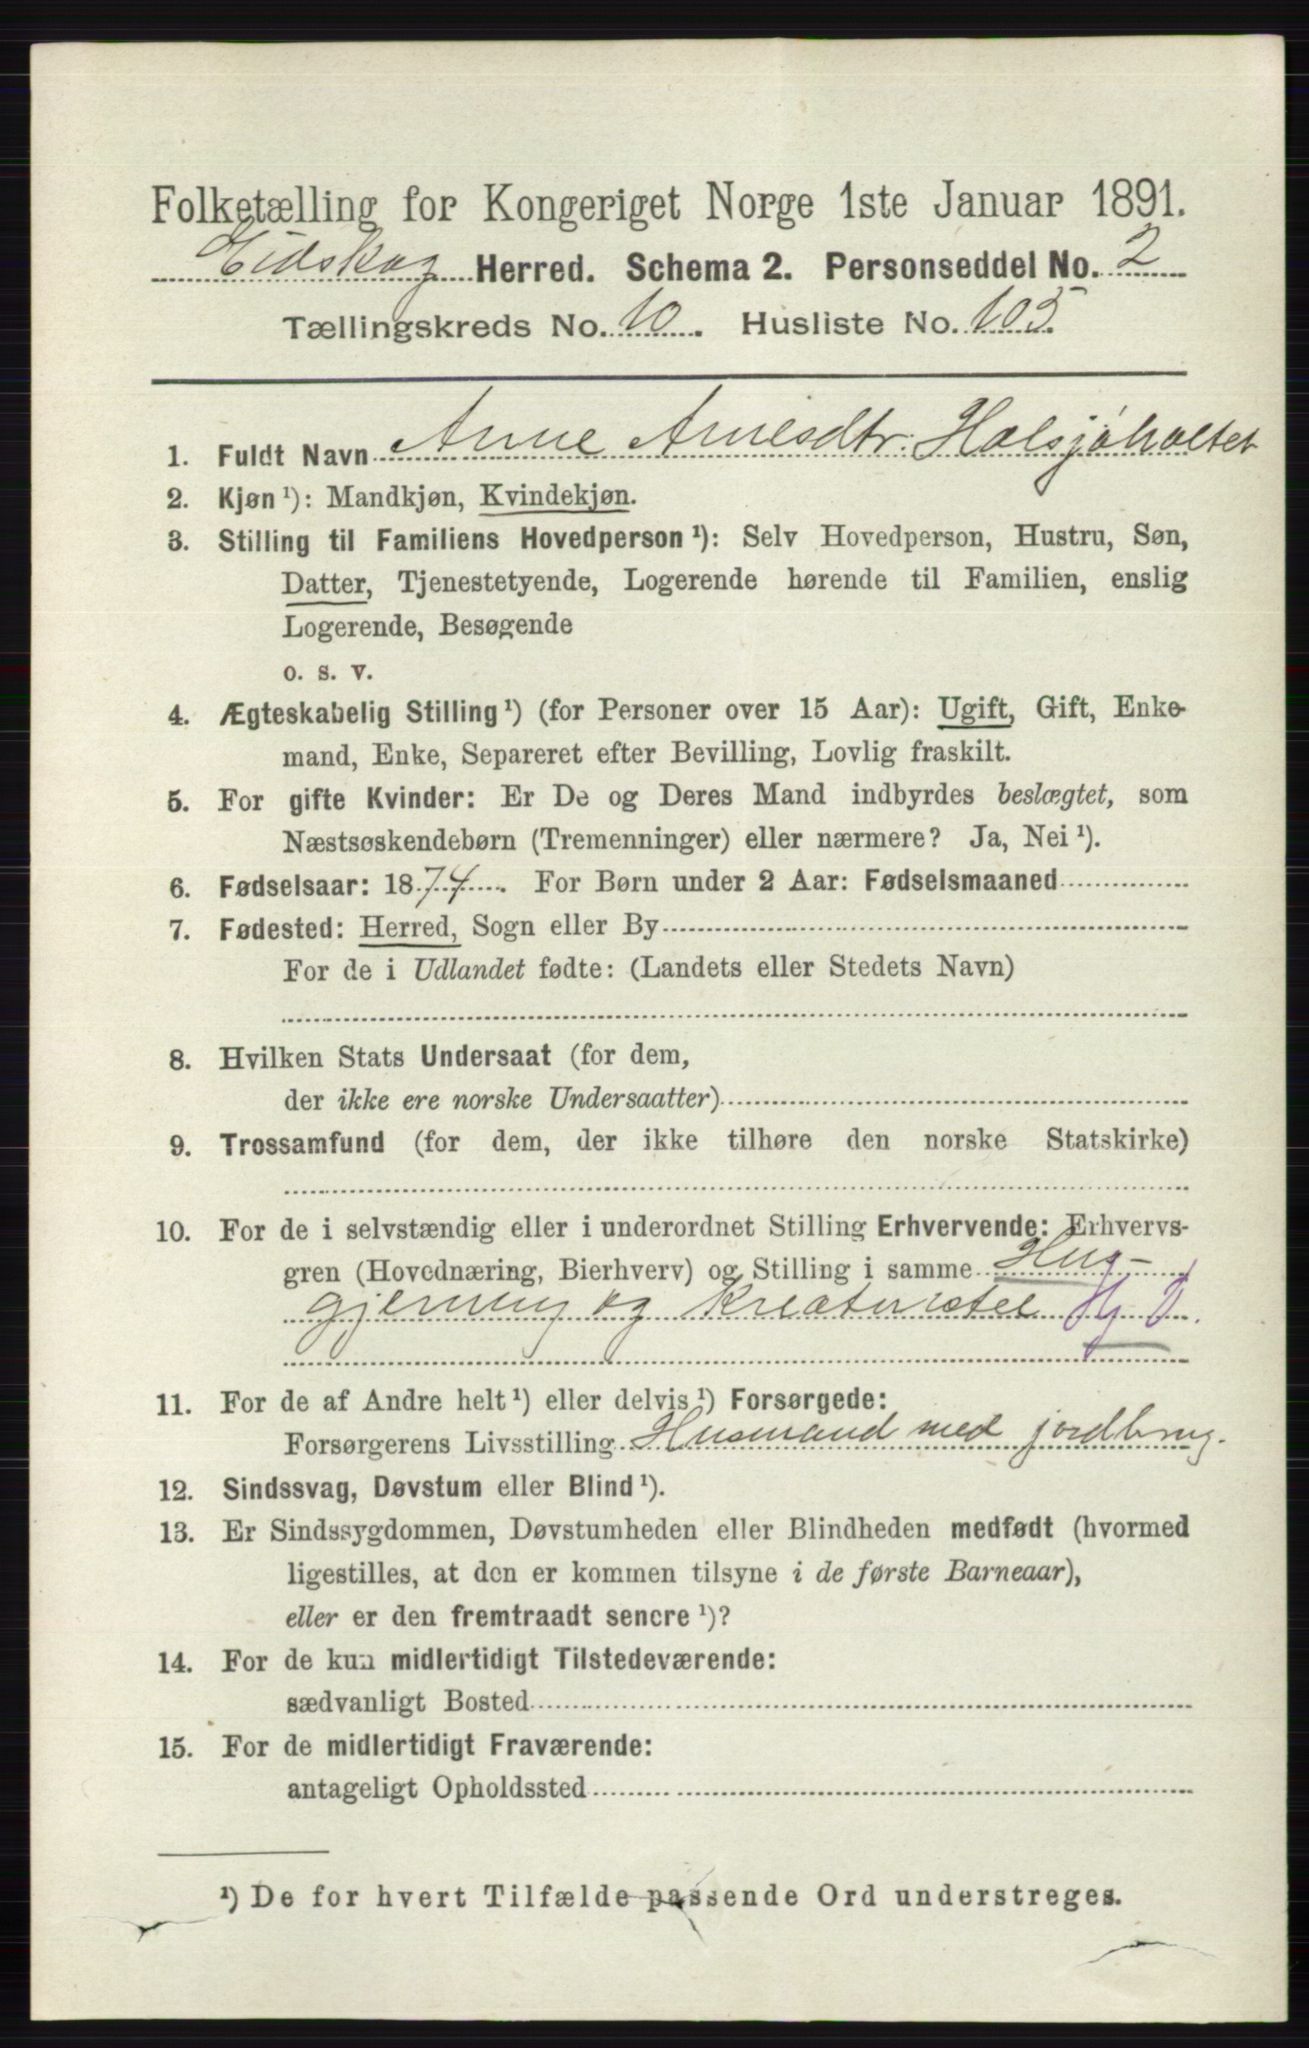 Folketælling for Kongeriget Norge 1ste Januar 1891.
Eidskog Herred. Schema 2. Personseddel No. 2
Tællingskreds No. 10. Husliste No. 105.
1. Fuldt Navn Anne Arnesdtr. Halsjøholtet
2. Kjøn¹): Mandkjøn, Kvindekjøn.
3. Stilling til Familiens Hovedperson¹): Selv Hovedperson, Hustru, Søn,
Datter, Tjenestetyende, Logerende hørende til Familien, enslig
Logerende, Besøgende
o. s. v.
4. Ægteskabelig Stilling¹) (for Personer over 15 Aar): Ugift, Gift, Enke-
mand, Enke, Separeret efter Bevilling, Lovlig fraskilt.
5. For gifte Kvinder: Er De og Deres Mand indbyrdes beslægtet, som
Næstsøskendebørn (Tremenninger) eller nærmere? Ja, Nei¹).
6. Fødselsaar: 1874. For Børn under 2 Aar: Fødselsmaaned
7. Fødested: Herred, Sogn eller By
For de i Udlandet fødte: (Landets eller Stedets Navn)
8. Hvilken Stats Undersaat (for dem,
der ikke ere norske Undersaatter)
9. Trossamfund (for dem, der ikke tilhøre den norske Statskirke)
10. For de i selvstændig eller i underordnet Stilling Erhvervende: Erhvervs-
gren (Hovednæring, Bierhverv) og Stilling i samme Hus-
gjerning og Kreaturstel
11. For de af Andre helt¹) eller delvis¹) Forsørgede:
Forsørgerens Livsstilling Husmand med jordbrug.
12. Sindssvag, Døvstum eller Blind¹).
13. Er Sindssygdommen, Døvstumheden eller Blindheden medfødt (hvormed
ligestilles, at den er kommen tilsyne i de første Barneaar),
eller er den fremtraadt senere¹)?
14. For de kun midlertidigt Tilstedeværende:
sædvanligt Bosted
15. For de midlertidigt Fraværende:
antageligt Opholdssted
¹) De for hvert Tilfælde passende Ord understreges.